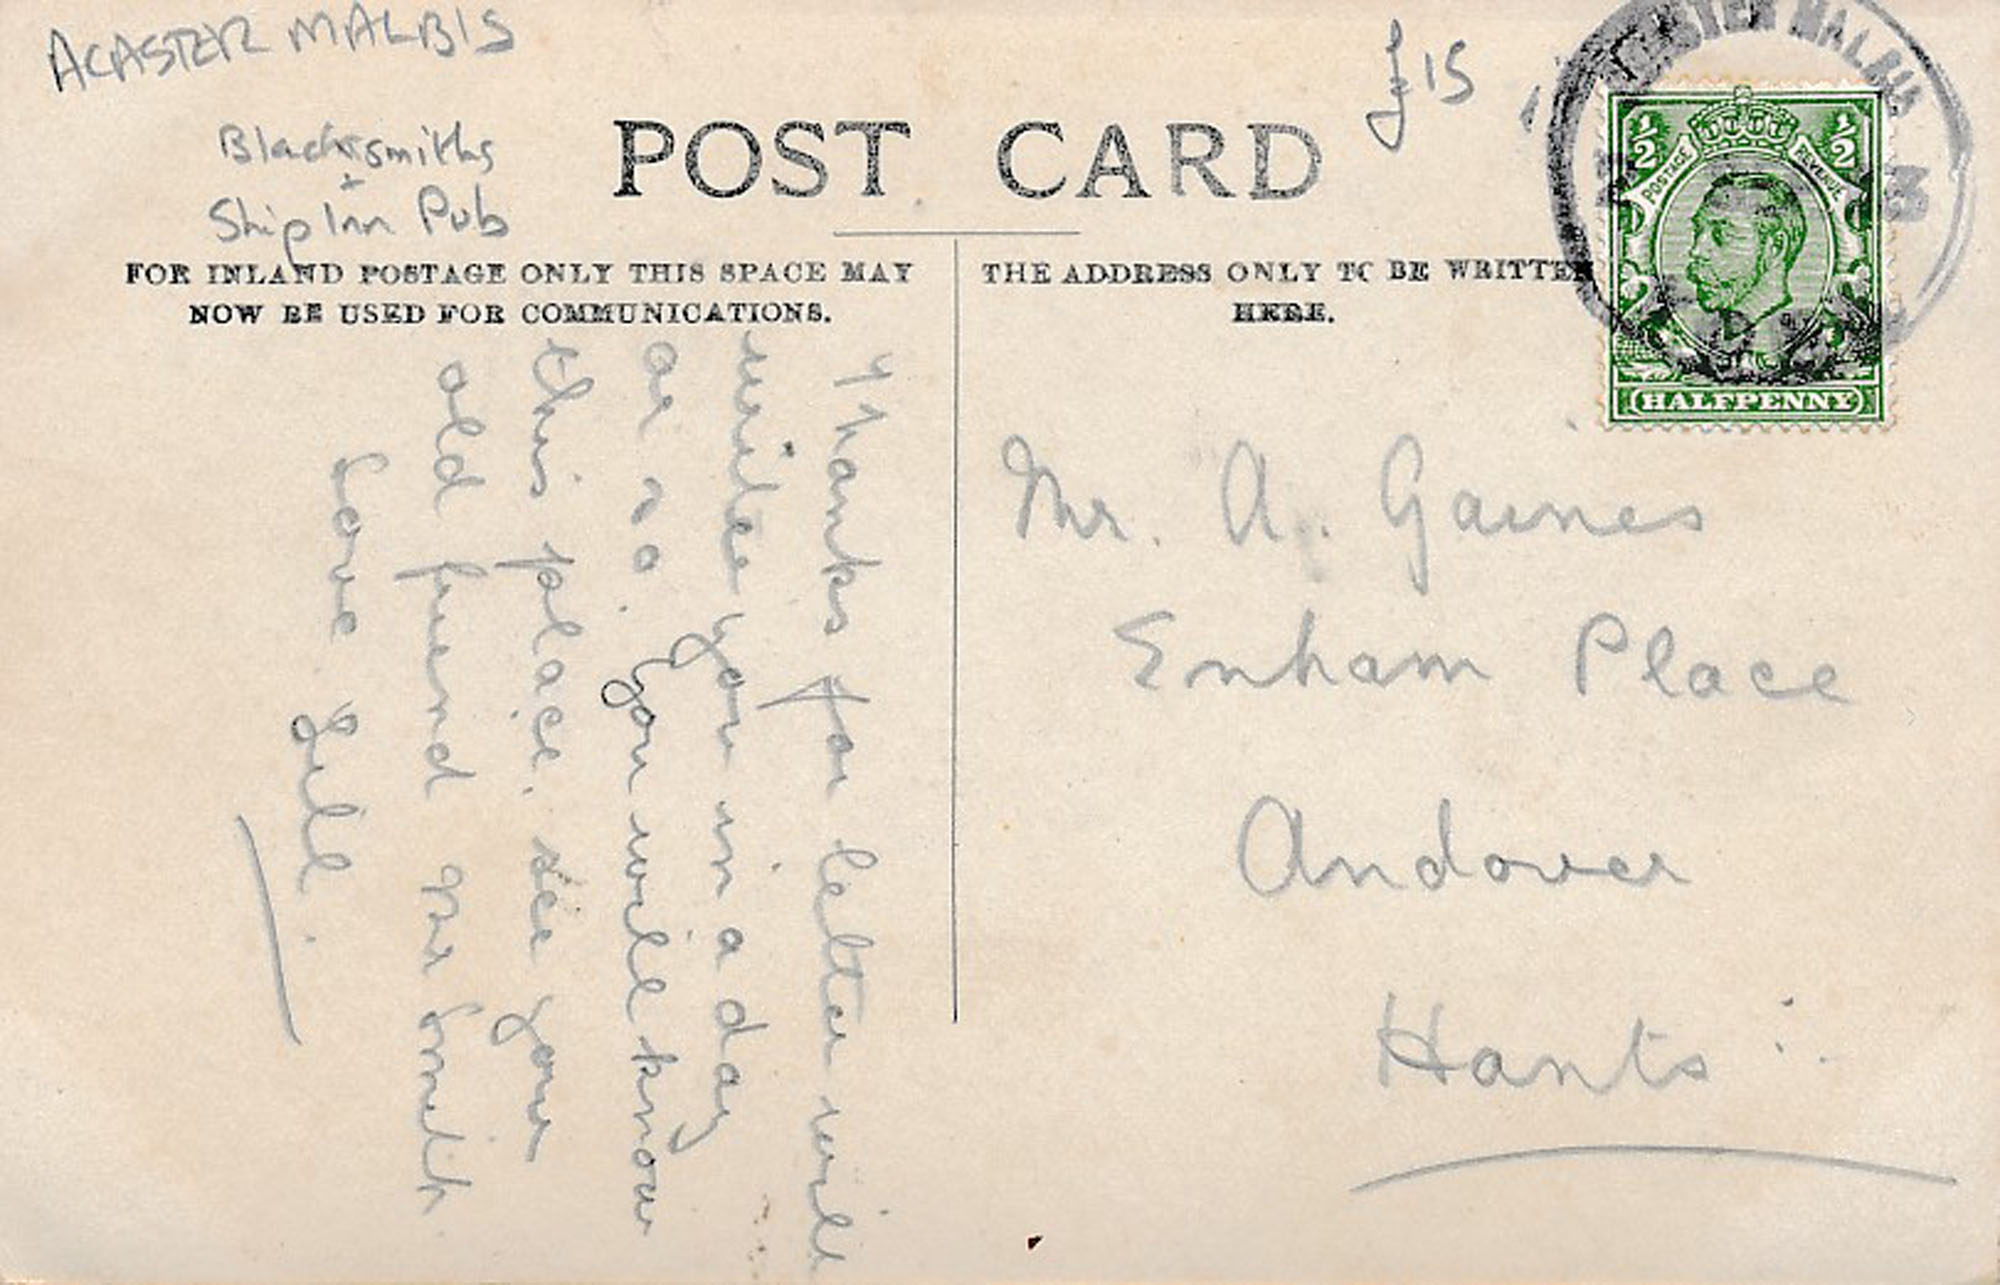 ACASTER MALBIS
Blacksmiths
+
Ship Inn Pub
£15
POST CARD
FOR INLAND POSTAGE ONLY THIS SPACE MAY
NOW BE USED FOR COMMUNICATIONS.
THE ADDRESS ONLY TO BE WRITTEN
HERE.
ACASTER MALBIS
3
½ ½
POSTAGE REVENUE
HALFPENNY
Thanks for letter will
write you in a day
or so. you will know
this place. see your
old friend Mr Smith
Love Gill.
Mr. A. Gaines
Enham Place
Andover
Hants